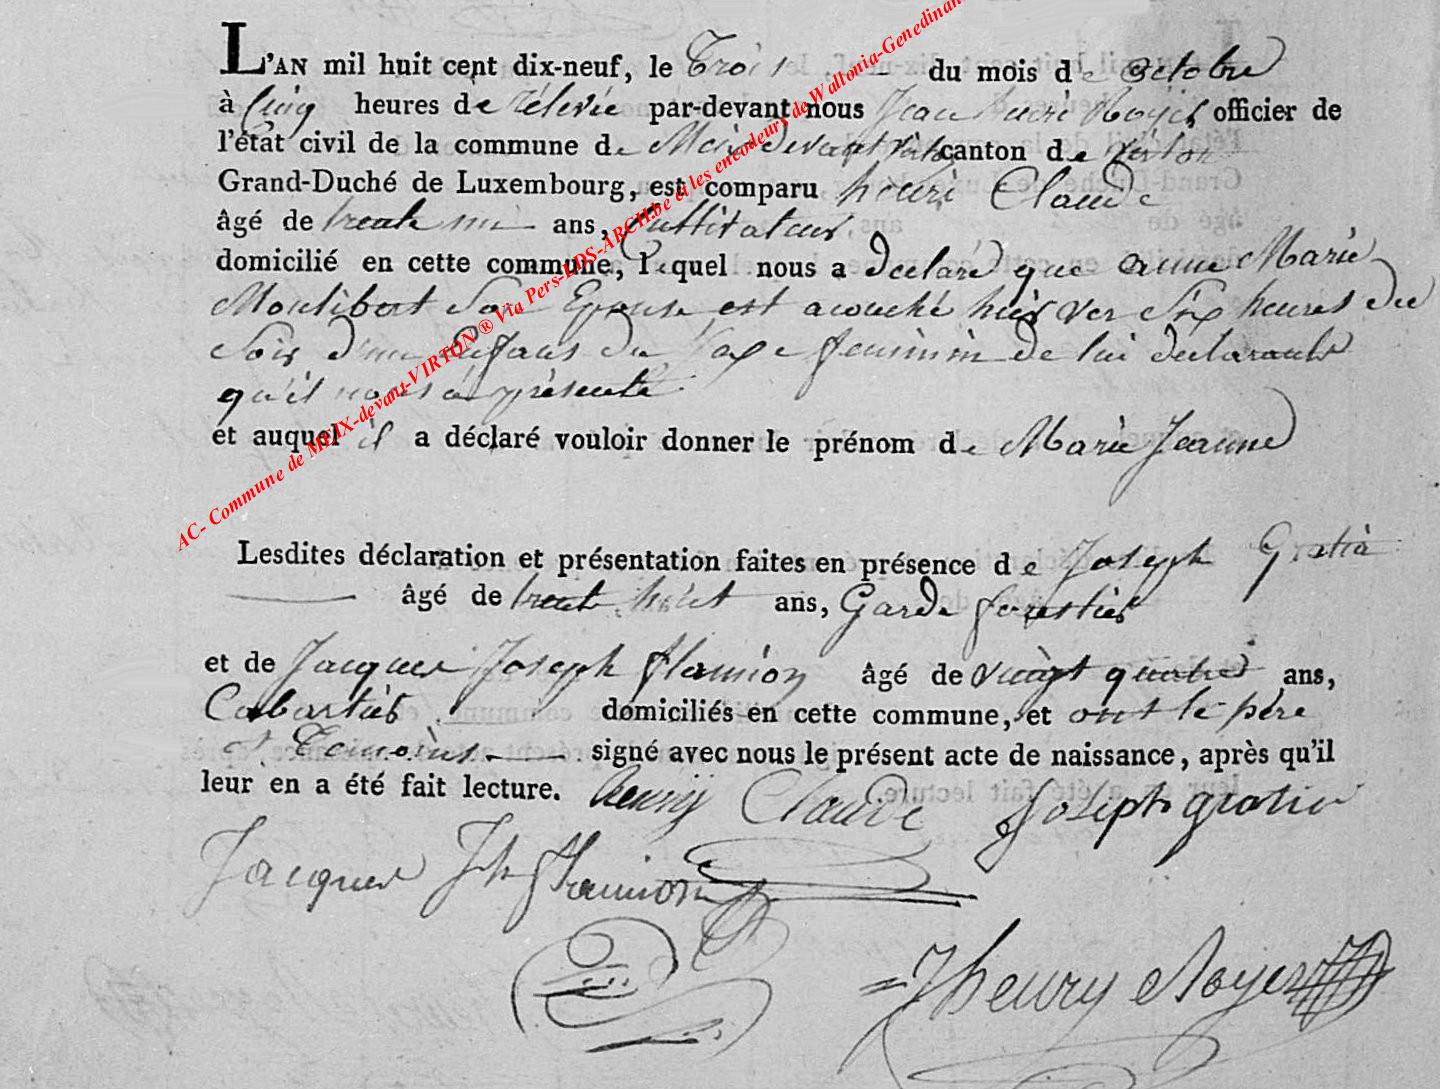 L'AN mil huit cent dix-neuf, le Trois du mois de octobre
à Cinq heures de rélevée par-devant nous Jean henri Noyer officier de
l'état civil de la commune de Meix devant virton canton de virton
Grand-Duché de Luxembourg, est comparu henri Claude
âgé de trente ans, Cultivateur
domicilié en cette commune, lequel nous a déclaré que anne Marie
Son Epouse est acouché hier ver Six heures du
Soir d'un Enfans du Saxe feminin de lui declarant
qu'il nous a présenté
et auquel il a déclaré vouloir donner le prénom de Marie Jeanne
Lesdites déclaration et présentation faites en présence de Joseph Gratia
âgé de trente huit ans, Garde forestier
et de Jacques Joseph flamion âgé de vingt quatre ans,
Cabartier domiciliés en cette commune, et ont le père
et Temoins signé avec nous le présent acte de naissance, après qu'il
leur en a été fait lecture. henrij Claude Joseph gratia
Jacques Jh flamion
Jhenry Noyer
AC- Commune de MEIX-devant-VIRTON ® Via Pers-LDS-ARCH.be et les encodeurs de Wallonia-Genedinan